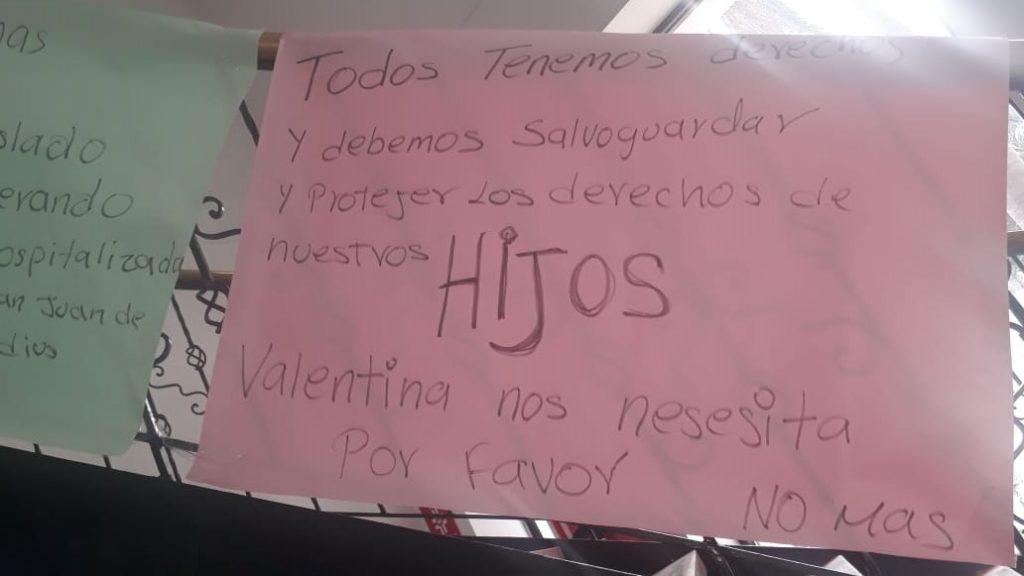 slado
erando
ospitalizada
an Juan de
dios
Todos Tenemos derechos
y debemos Salvoguardar
y Protejer Los derechos de
nuestros HIJOS
Valentina nos nesesita
Por Favor
NO MAS